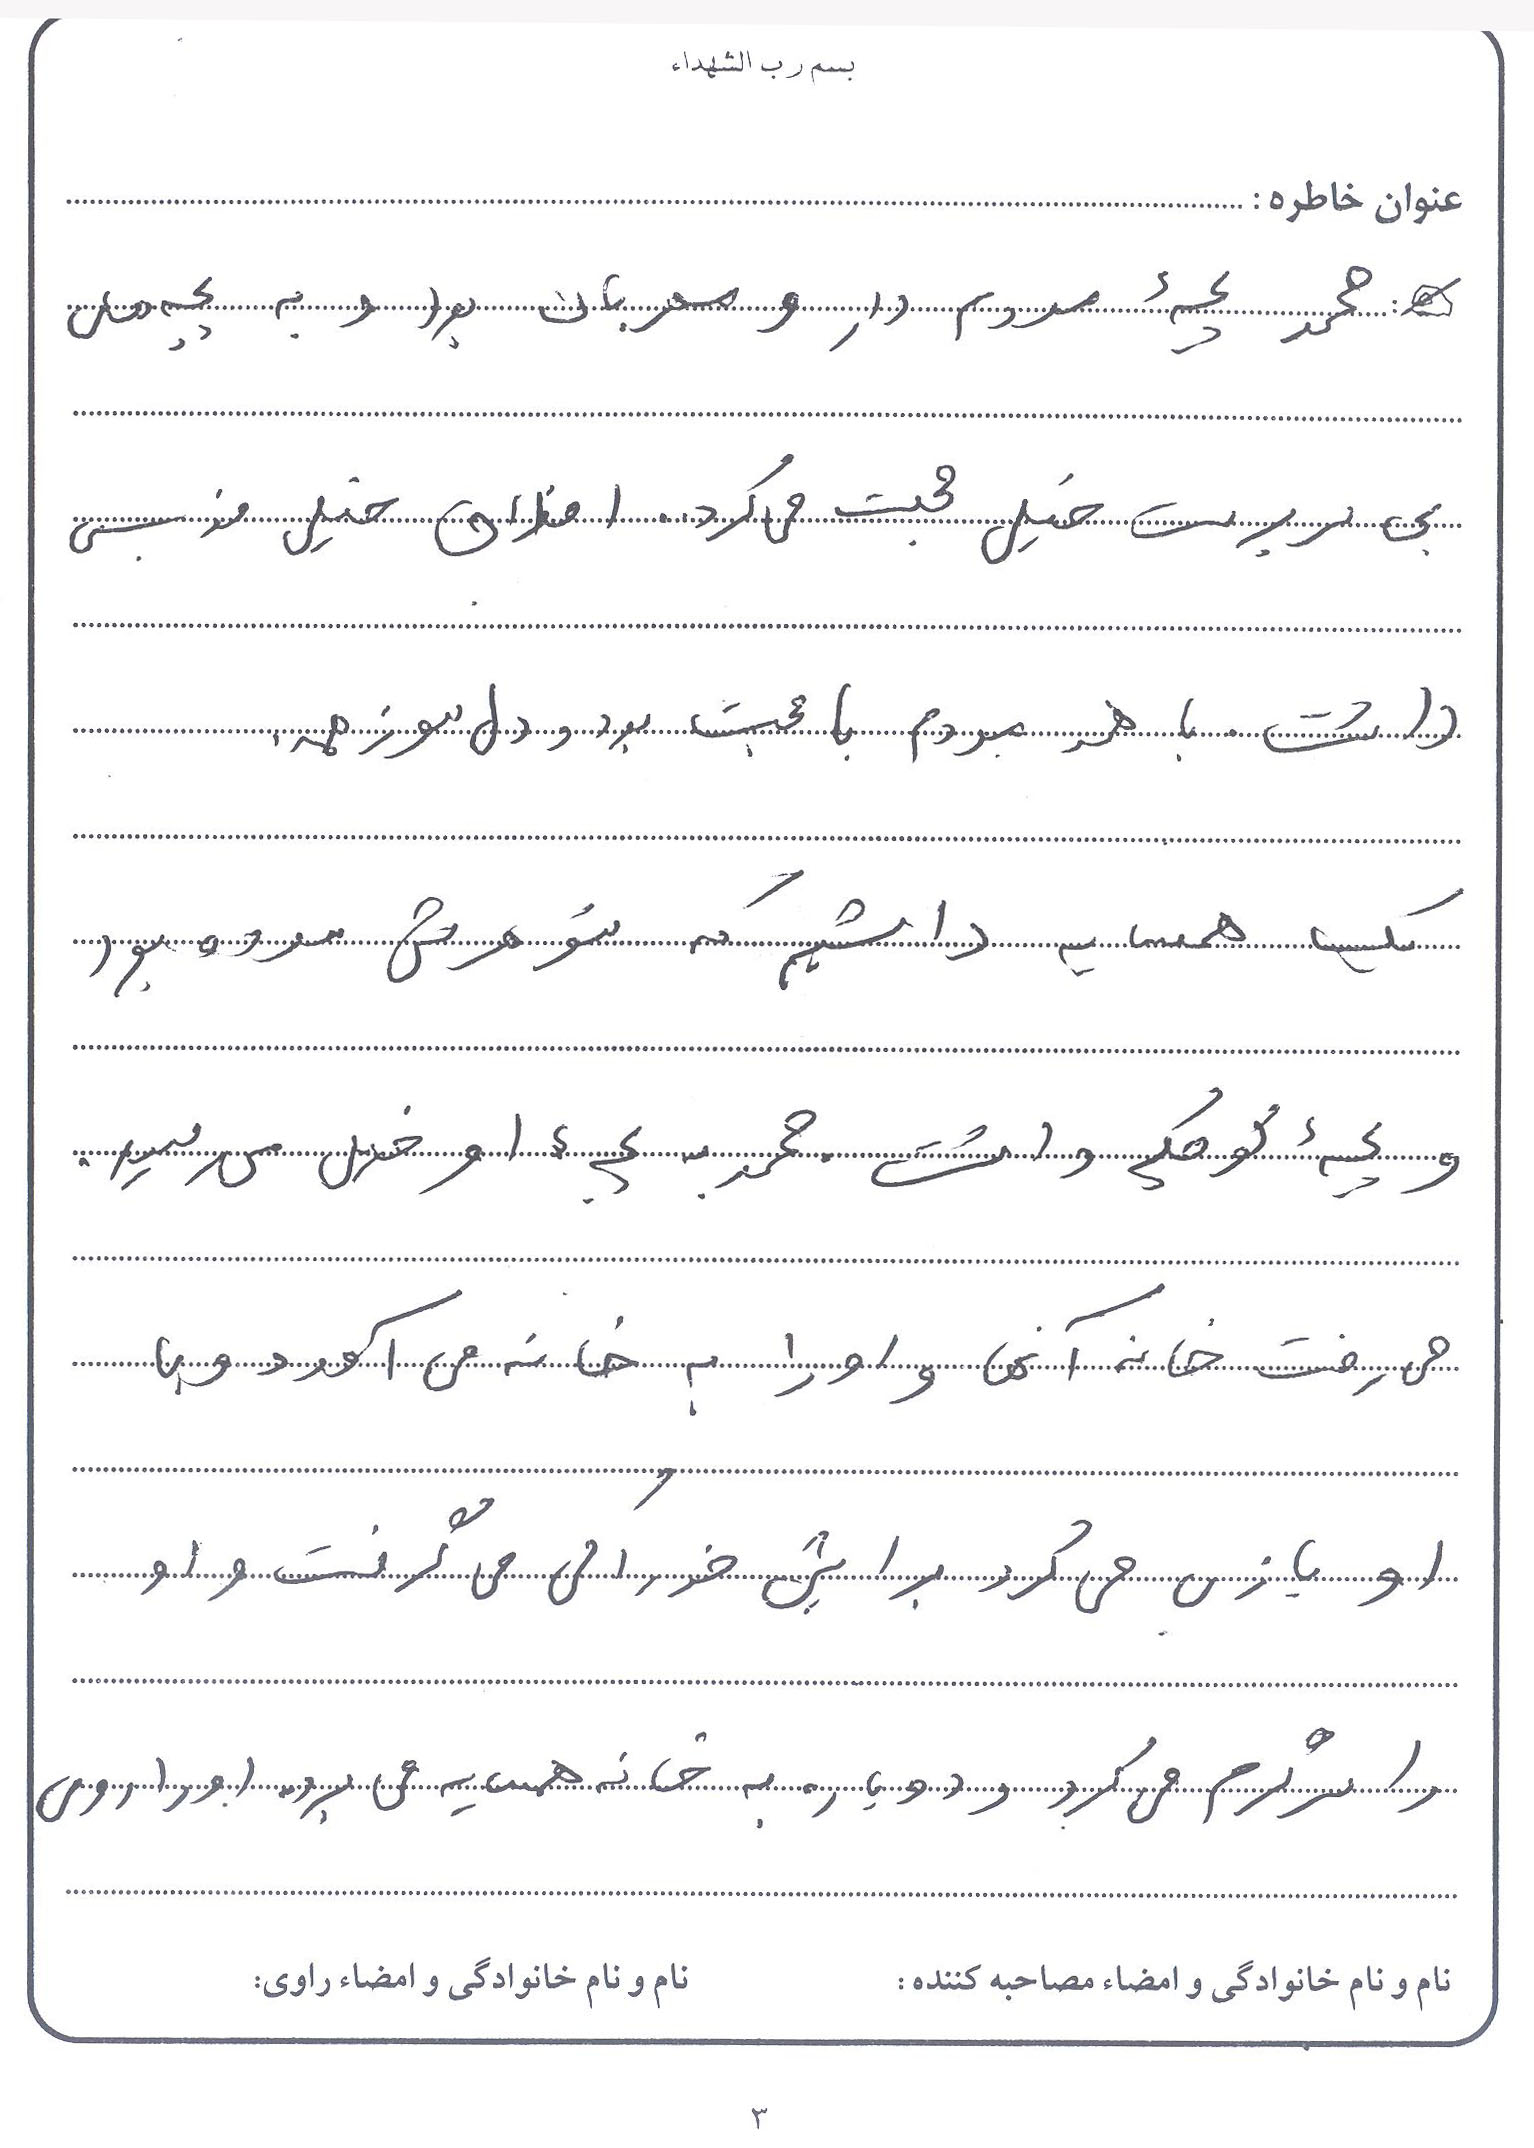 بسم رب الشهداء
عنوان خاطره :
محمد بچهٔ مردم دار و مهربان بود و به بچه های
بی سرپرست خیلی محبت می کرد. اخلاق خیلی
داشت. با همه مردم با محبت بود و دل سوز همه.
یک همسایه داشتیم که شوهرش مرده بود
و بچهٔ کوچکی داشت. محمد به بچهٔ او خیلی می رسید.
می رفت خانه آنها و او را به خانه می آورد و با
او بازی می کرد برایش خوراکی می گرفت و او
را سرگرم می کرد و دوباره به خانه همسایه می برد. او را روی
نام و نام خانوادگی و امضاء مصاحبه کننده : نام و نام خانوادگی و امضاء راوی:
۳